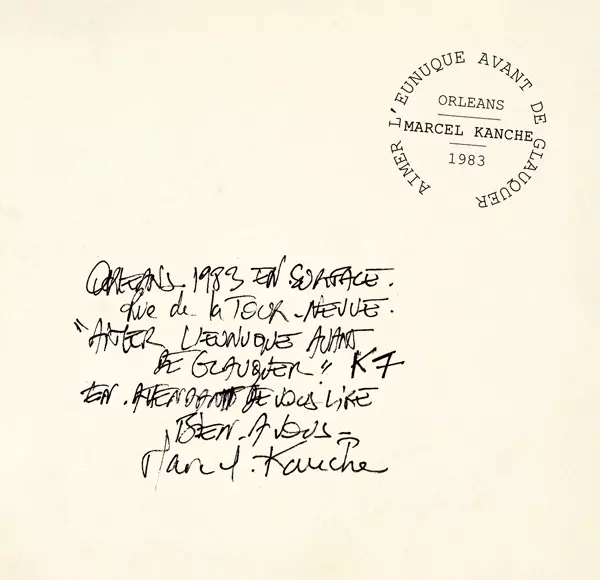 AIMER L'EUNUQUE AVANT DE GLAUQUER
ORLEANS
MARCEL KANCHE
1983
ORLEANS. 1983 EN. SURFACE.
Rue de la TOUR-NEUVE.
"AIMER L'EUNUQUE AVANT
DE GLAUQUER" K7
EN. ATTENDANT DE VOUS LIRE
BIEN. A VOUS
Marcel. Kanche